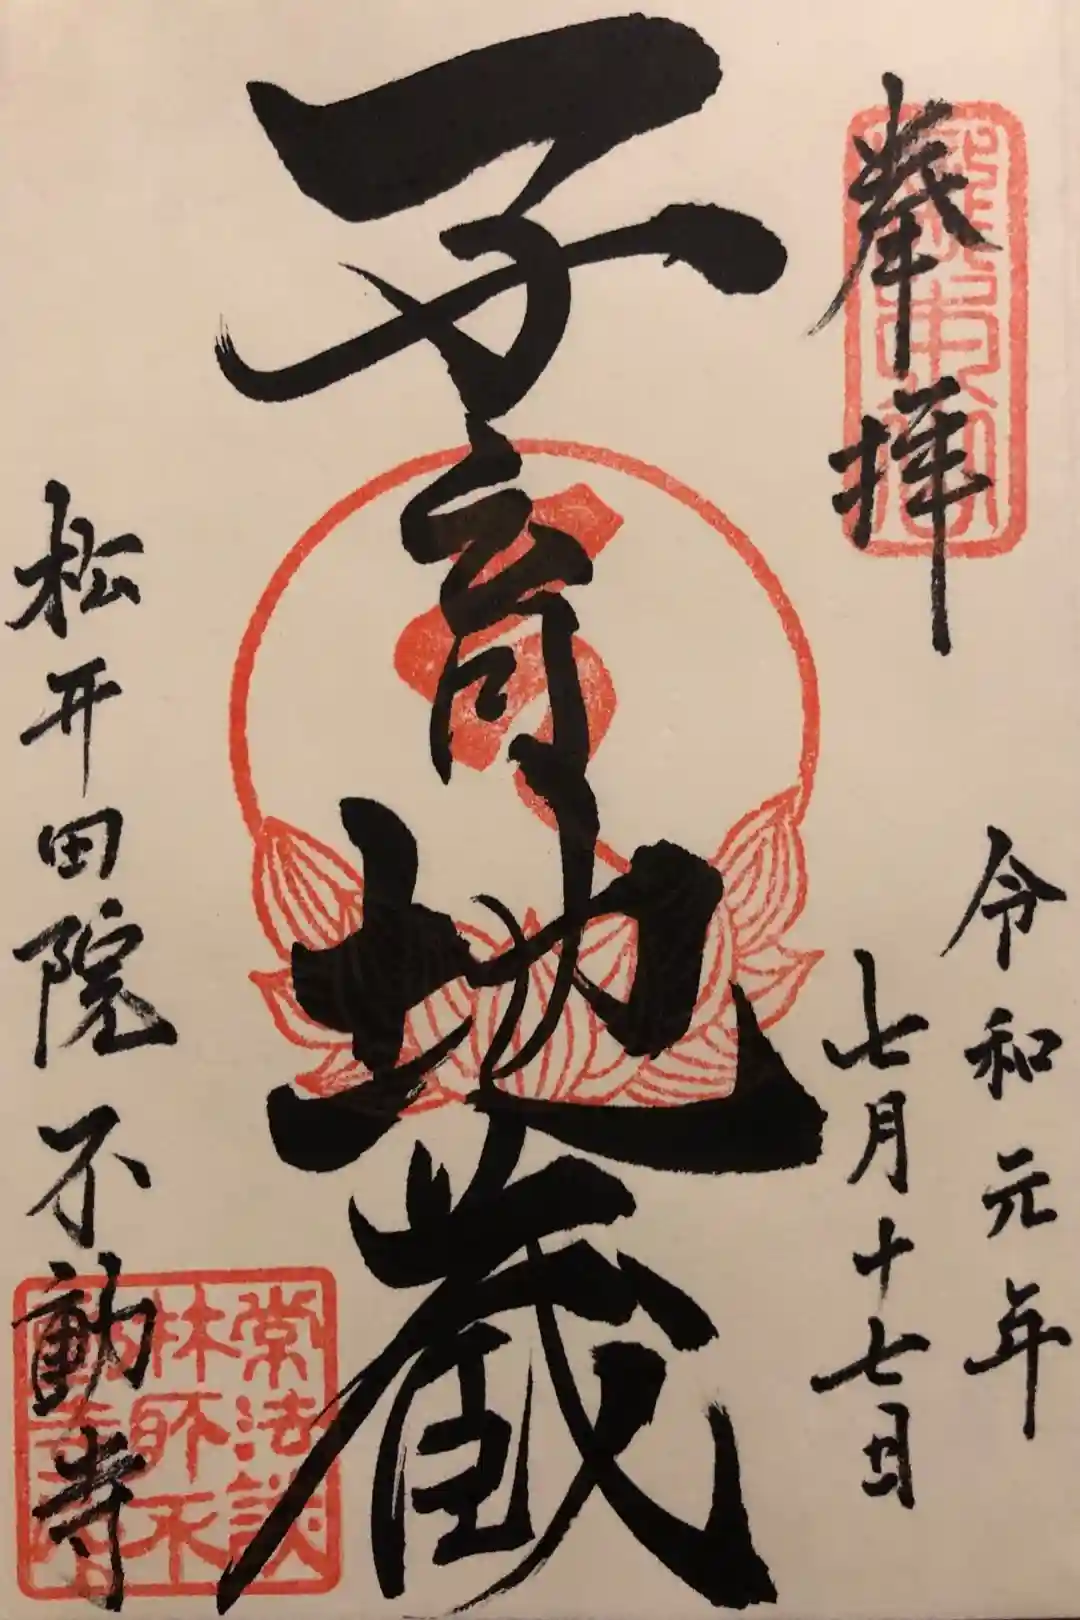 奉拝
令和元年
七月十七日
子育地蔵
松井田院 不動寺
常法談
林師不
動寺